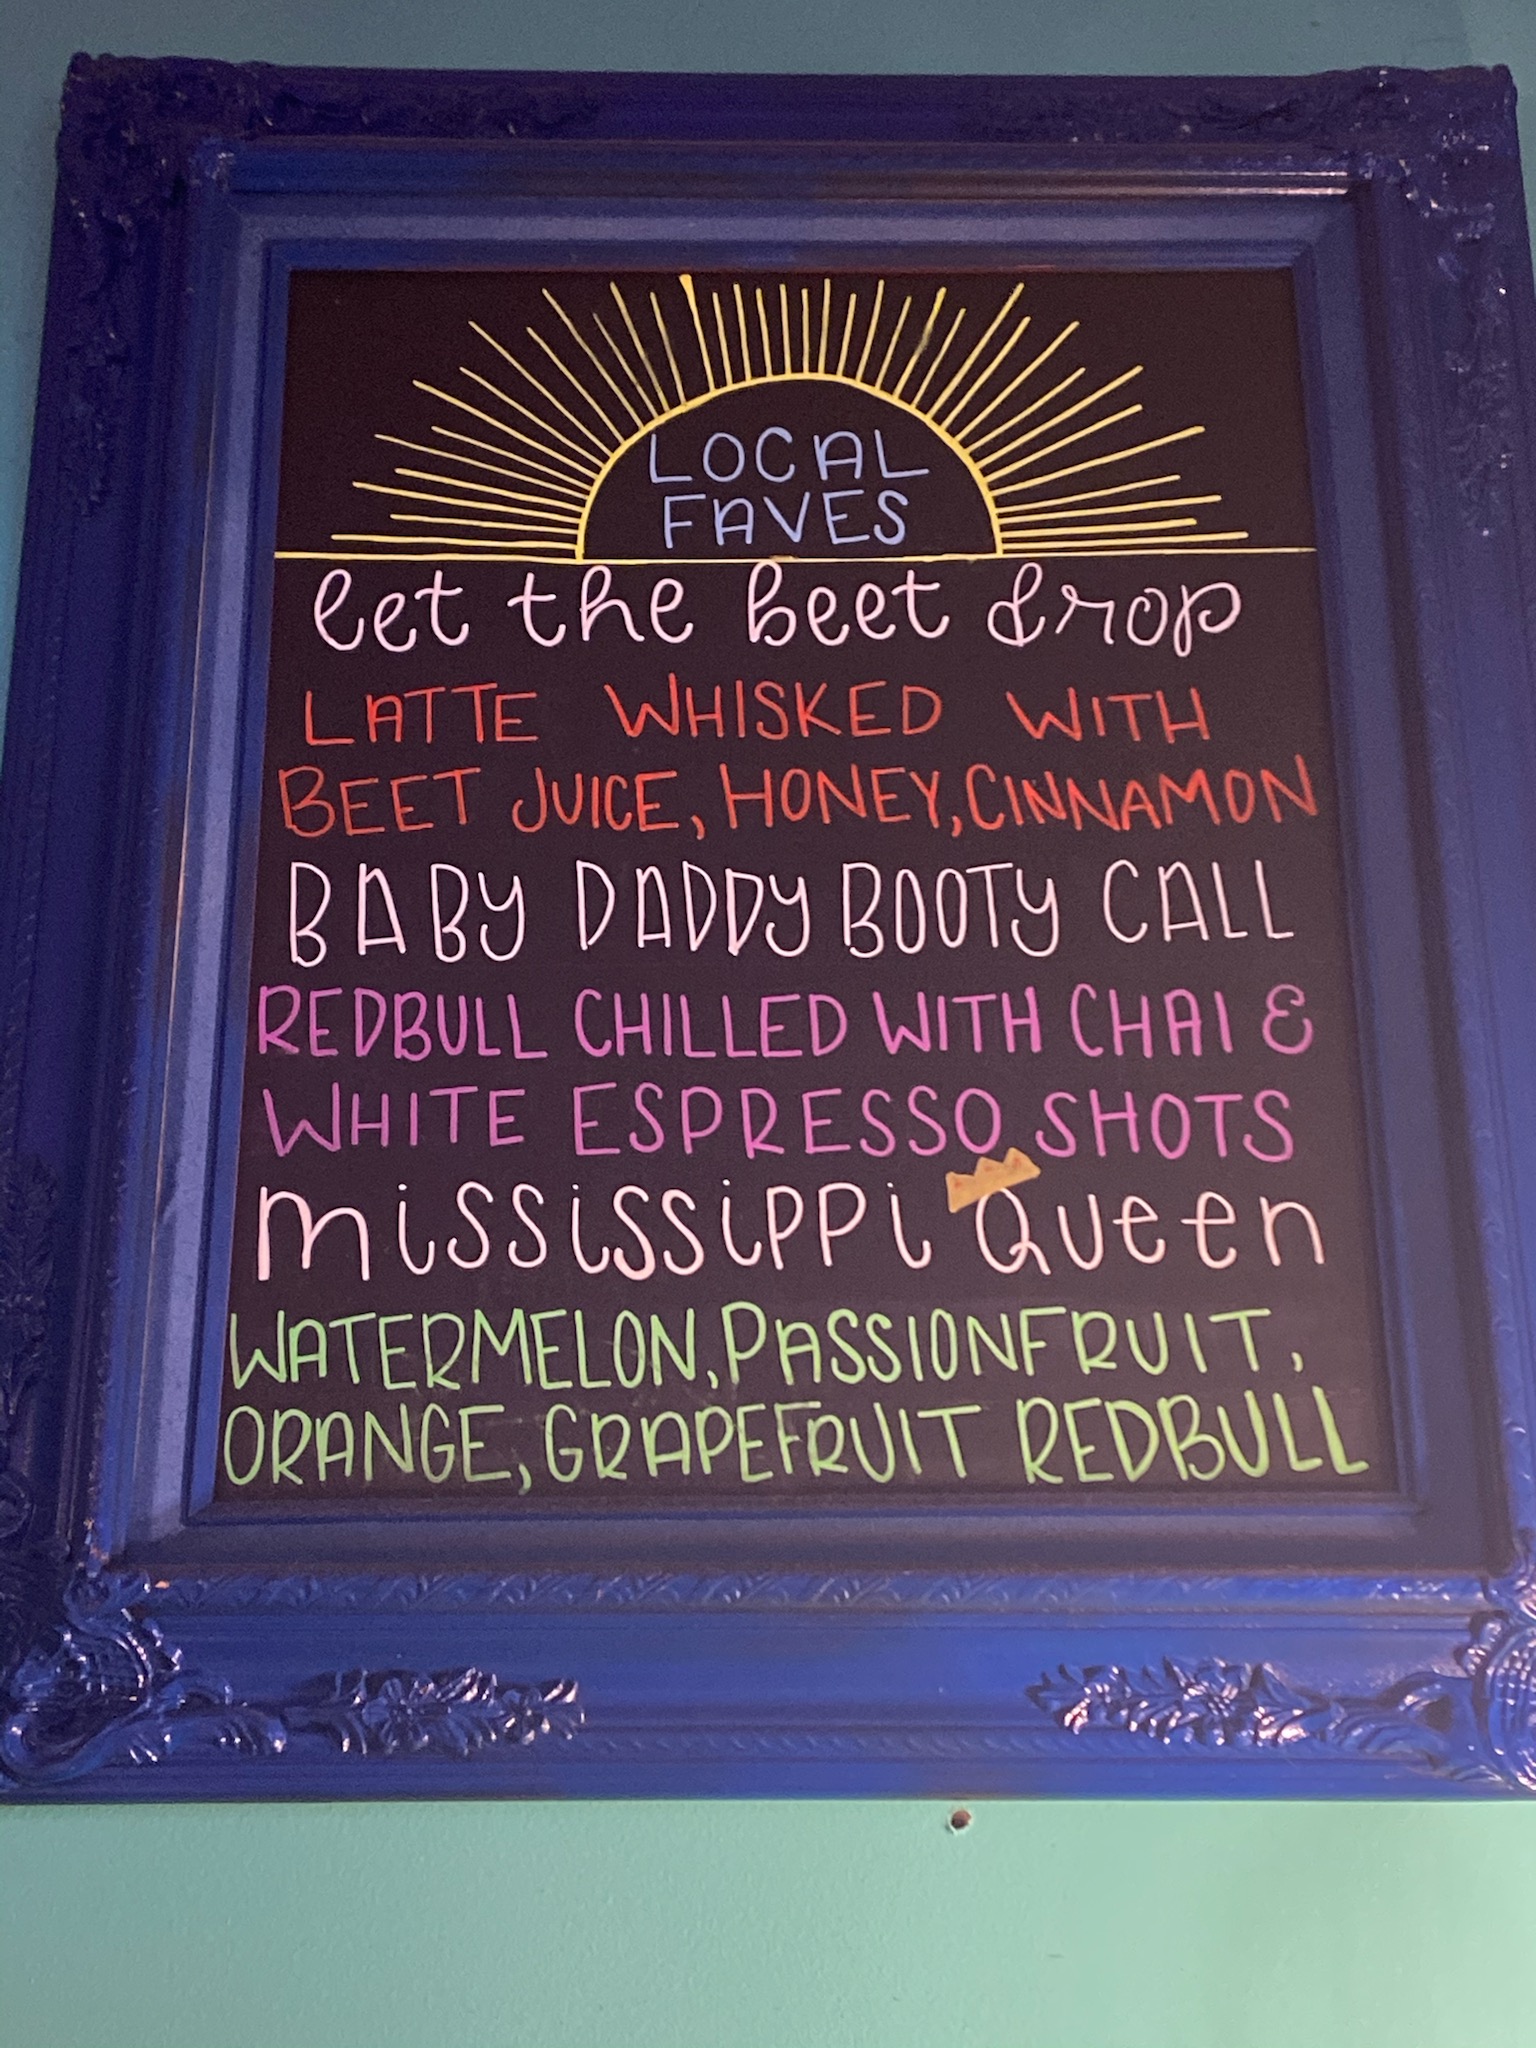 LOCAL
FAVES
let the beet drop
LATTE WHISKED WITH
BEET JUICE, HONEY, CINNAMON
BABY DADDY BOOTY CALL
REDBULL CHILLED WITH CHAI &
WHITE ESPRESSO SHOTS
mississippi Queen
WATERMELON, PASSIONFRUIT,
ORANGE, GRAPEFRUIT REDBULL